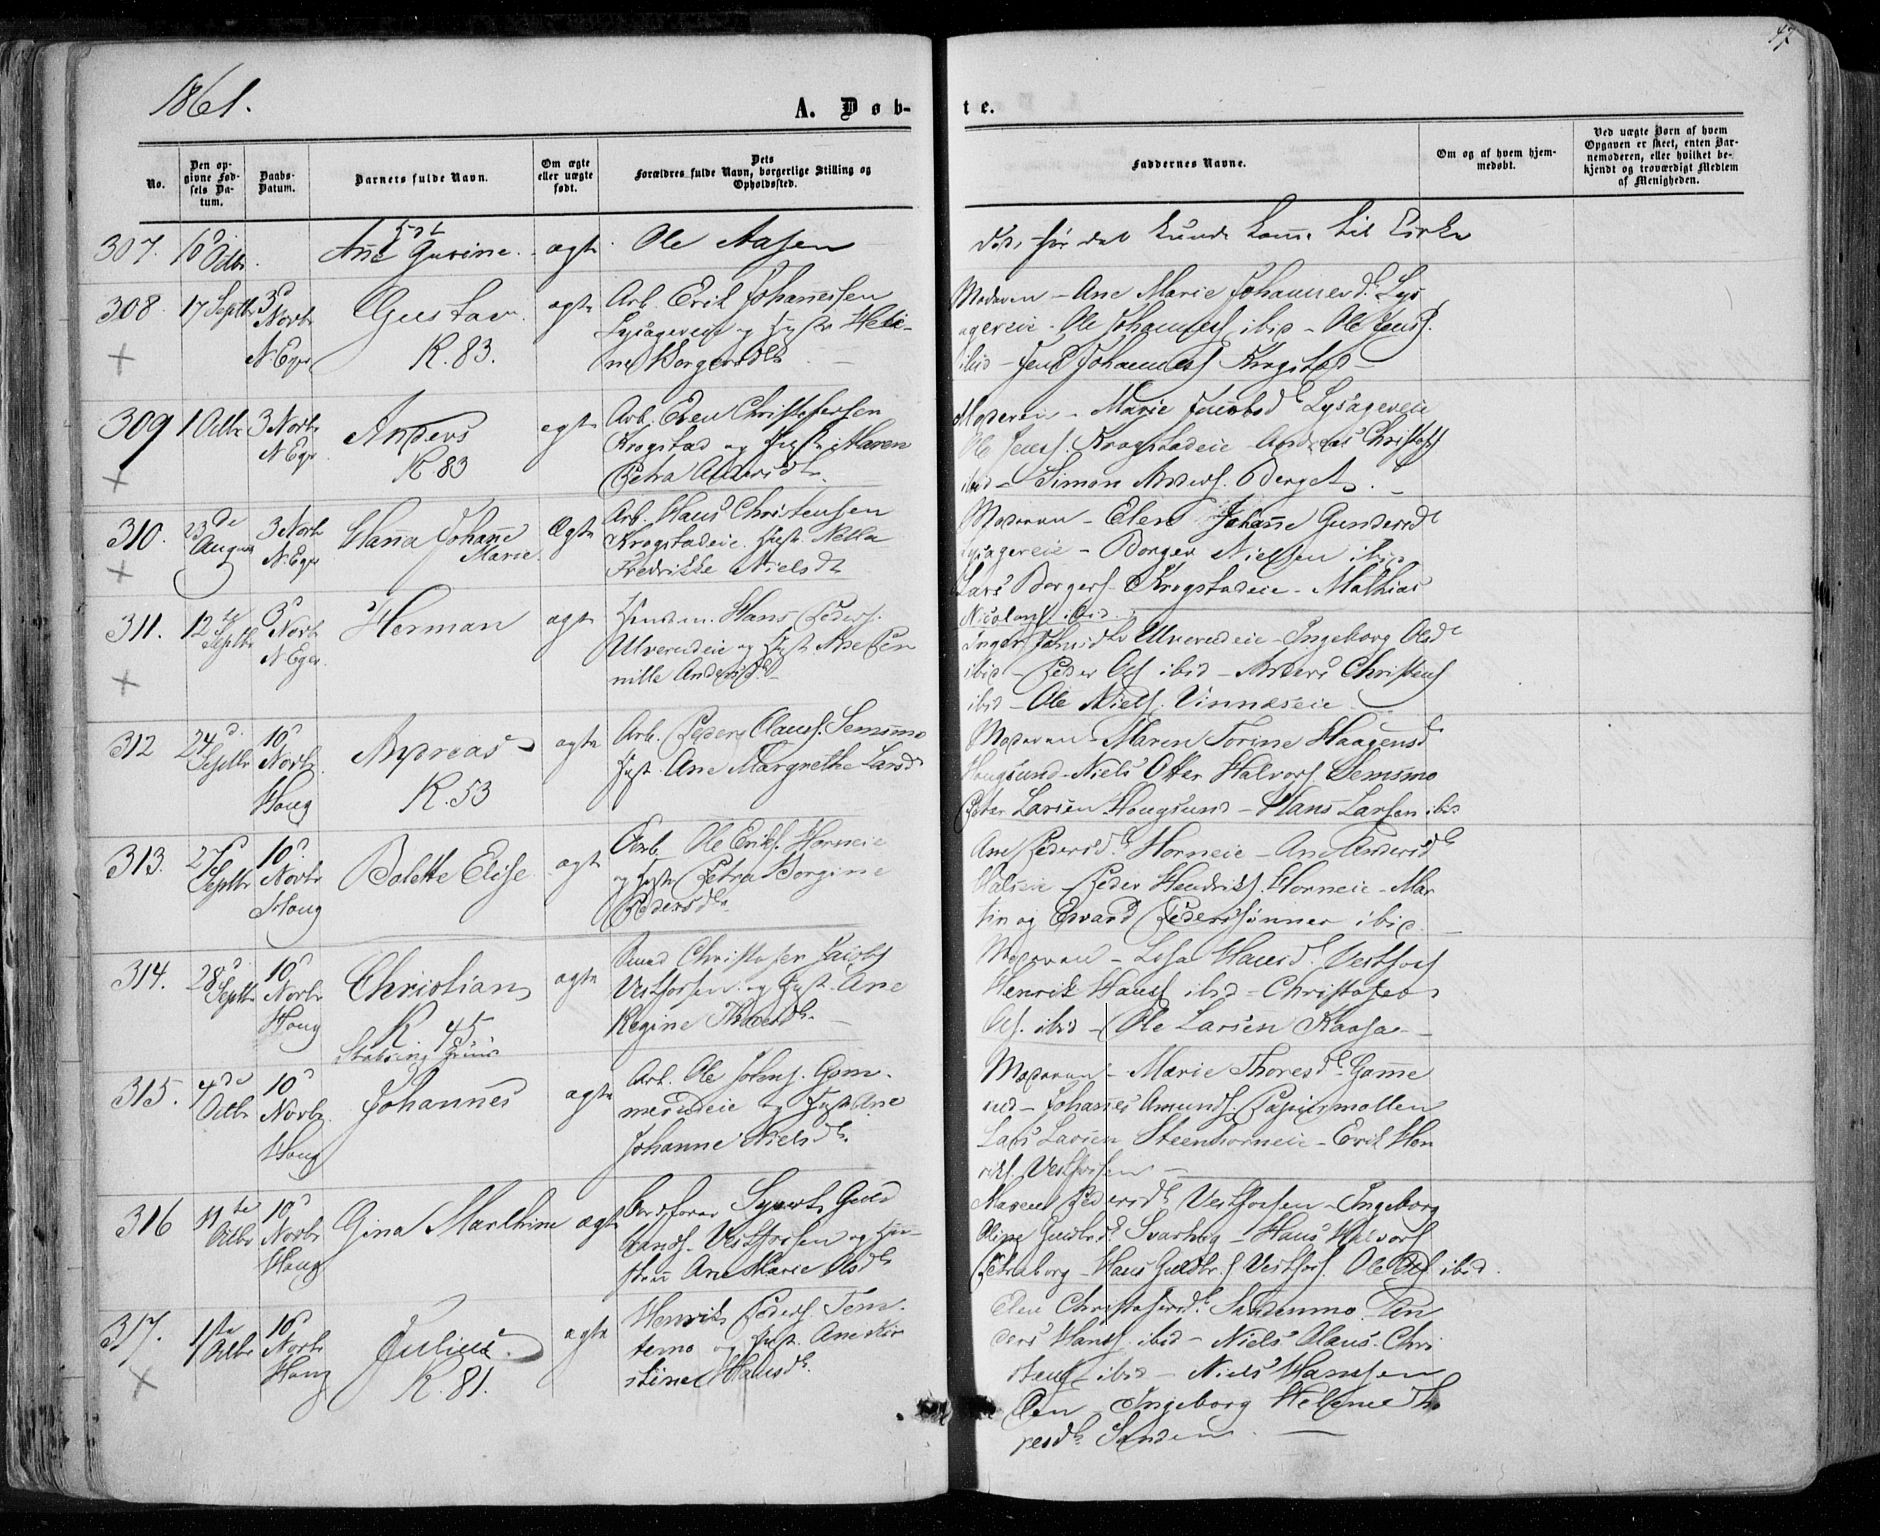 47
1861.
A. Døb-
te.
No.
Den op-
givne Fød-
sels Da-
tum.
Daabs-
Datum.
Barnets fulde Navn.
Om ægte
eller uægte
født.
Dets
Forældres fulde Navn, borgerlige Stilling og
Opholdssted.
Faddernes Navne.
Om og af hvem hjem-
medøbt.
Ved uægte Børn af hvem
Opgaven er skeet, enten Bar-
nemoderen, eller hvilket be-
kjendt og troværdigt Medlem
af Menigheden.
307.
Octbr
Ane Gurine.
ægte
Ole Aasen
død, før det kunde komme til Kirke
308.
17 Septbr
3d
Novbr
N. Eger
Gustav
K. 83.
ægte
Arb. Erik Johannessen
Lysagereie og Hustr. Hele-
ne Borgersdtr
Moderen - Ane Marie Johannesdtr Lys
agereie - Ole Johanness. ibid - Ole Jenss.
ibid - Jens Johanness. Krogstad
309
1 Octbr
3 Novbr
N. Eger
Anders
K 83
ægte
Arb. Even Christophersen
Krogstad og Hustr. Maren
Petra Andersdtr.
Moderen - Marie Jacobsdtr Lysagereie
Ole Jenss. Krogstadeie - Andreas Christofs
ibid - Simon Anders. Berget.
310.
23de
August
3 Novbr
N. Eger
Hanna Johanne
Marie
Ægte
Arb. Hans Christensen
Krogstadeie. Hustr. Nella
Fredrikke Nielsdtr
Moderen - Elen Johanne Gundersdtr
Lysagereie - Borger Nielsen ibid
Lars Borgers. Krogstadeie - Mathias
Nicolays. ibid
311.
12te
Septbr
3d Novbr
N. Eger.
Herman
ægte
Hans Peders.
Ulverudeie og Hust. Ane Per
nille Andersd.
Inger Ulverudeie - Ingeborg Olsdtr
ibid - Peder Ols. ibid - Anders Christens
ibid - Ole Niels. Vinnæseie
312
24d.
Septbr
10d
Novbr.
Houg
Andreas
K. 53
ægte
Arb. Peder Clauss. Semsmo
Hust. Ane Margrethe Larsdr
Moderen - Maren Torine Haagensdr
Hougsund - Niels Otter Halvors. Semsmo
Peter Larsen Hougsund - Hans Larsen ibid
313.
27d
Septbr
10d
Novbr
Houg
Bolette Elise
ægte
Arb. Ole Eriks. Horneie
og Hustr. Petra Borgine
Pedersdtr.
Ane Pedersdtr. Horneie - Ane Andersdtr
Peder Hendriks. Horneie - Mar
tin og Edvard Pederssønner ibid.
314.
28d
Septbr
10d
Novbr
Houg
Christian
K 45
ægte
Christofer Jacobs
Vestfossen og Hust. Ane
Regine
Moderen - Lisa Hansdr. Vestfoss
Henrik Hanss ibid - Christofer
Ols. ibid - Ole Larsen Kaasa
315.
4de
Octbr
10d
Novbr.
Houg
Johannes
ægte
Arb. Ole Johns. Gom-
merudeie og Hust. Ane
Johanne Nielsdtr.
Moderen - Marie Thoresdtr. Gome
rud - Johannes Amunds. Papirmøllen
Lars Larsen Steenhorneie - Erik Hen
riks. Vestfossen
316
11te
Octbr
10d
Novbr
Houg
Gina Marthine
ægte
Syvert Guld
brands. Vestfossen og Hu-
struu Ane Marie Olsdtr
Maren Pedersdtr Vestfossen - Ingeborg
Oline Guldbr.d. Svarthog - Hans Halvors
Hans Guldbr.s Vestfoss. Ole Ols ibid.
317.
1ste
Octbr
10d
Novbr
Houg
Julius.
K. 81.
ægte
Henrik Peders. Tem-
temo og Hust. Ane Kir
stine Hansdtr.
Elen Christofersdtr. Sandenmo. An
ders Hans. ibid - Niels Olaus Chri
stens. ibid - Niels Hanssen
Ingeborg Helene Tho
resdtr Sanden.